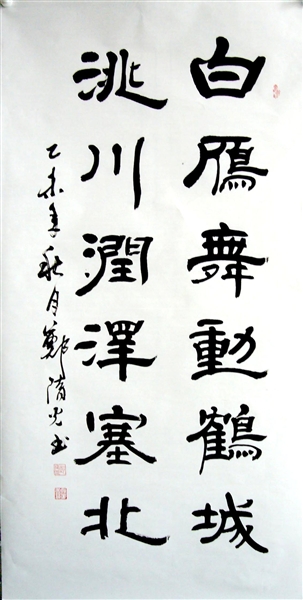 白鴈舞動鶴城
洮川潤澤塞北
乙未年秋月鄭清光书